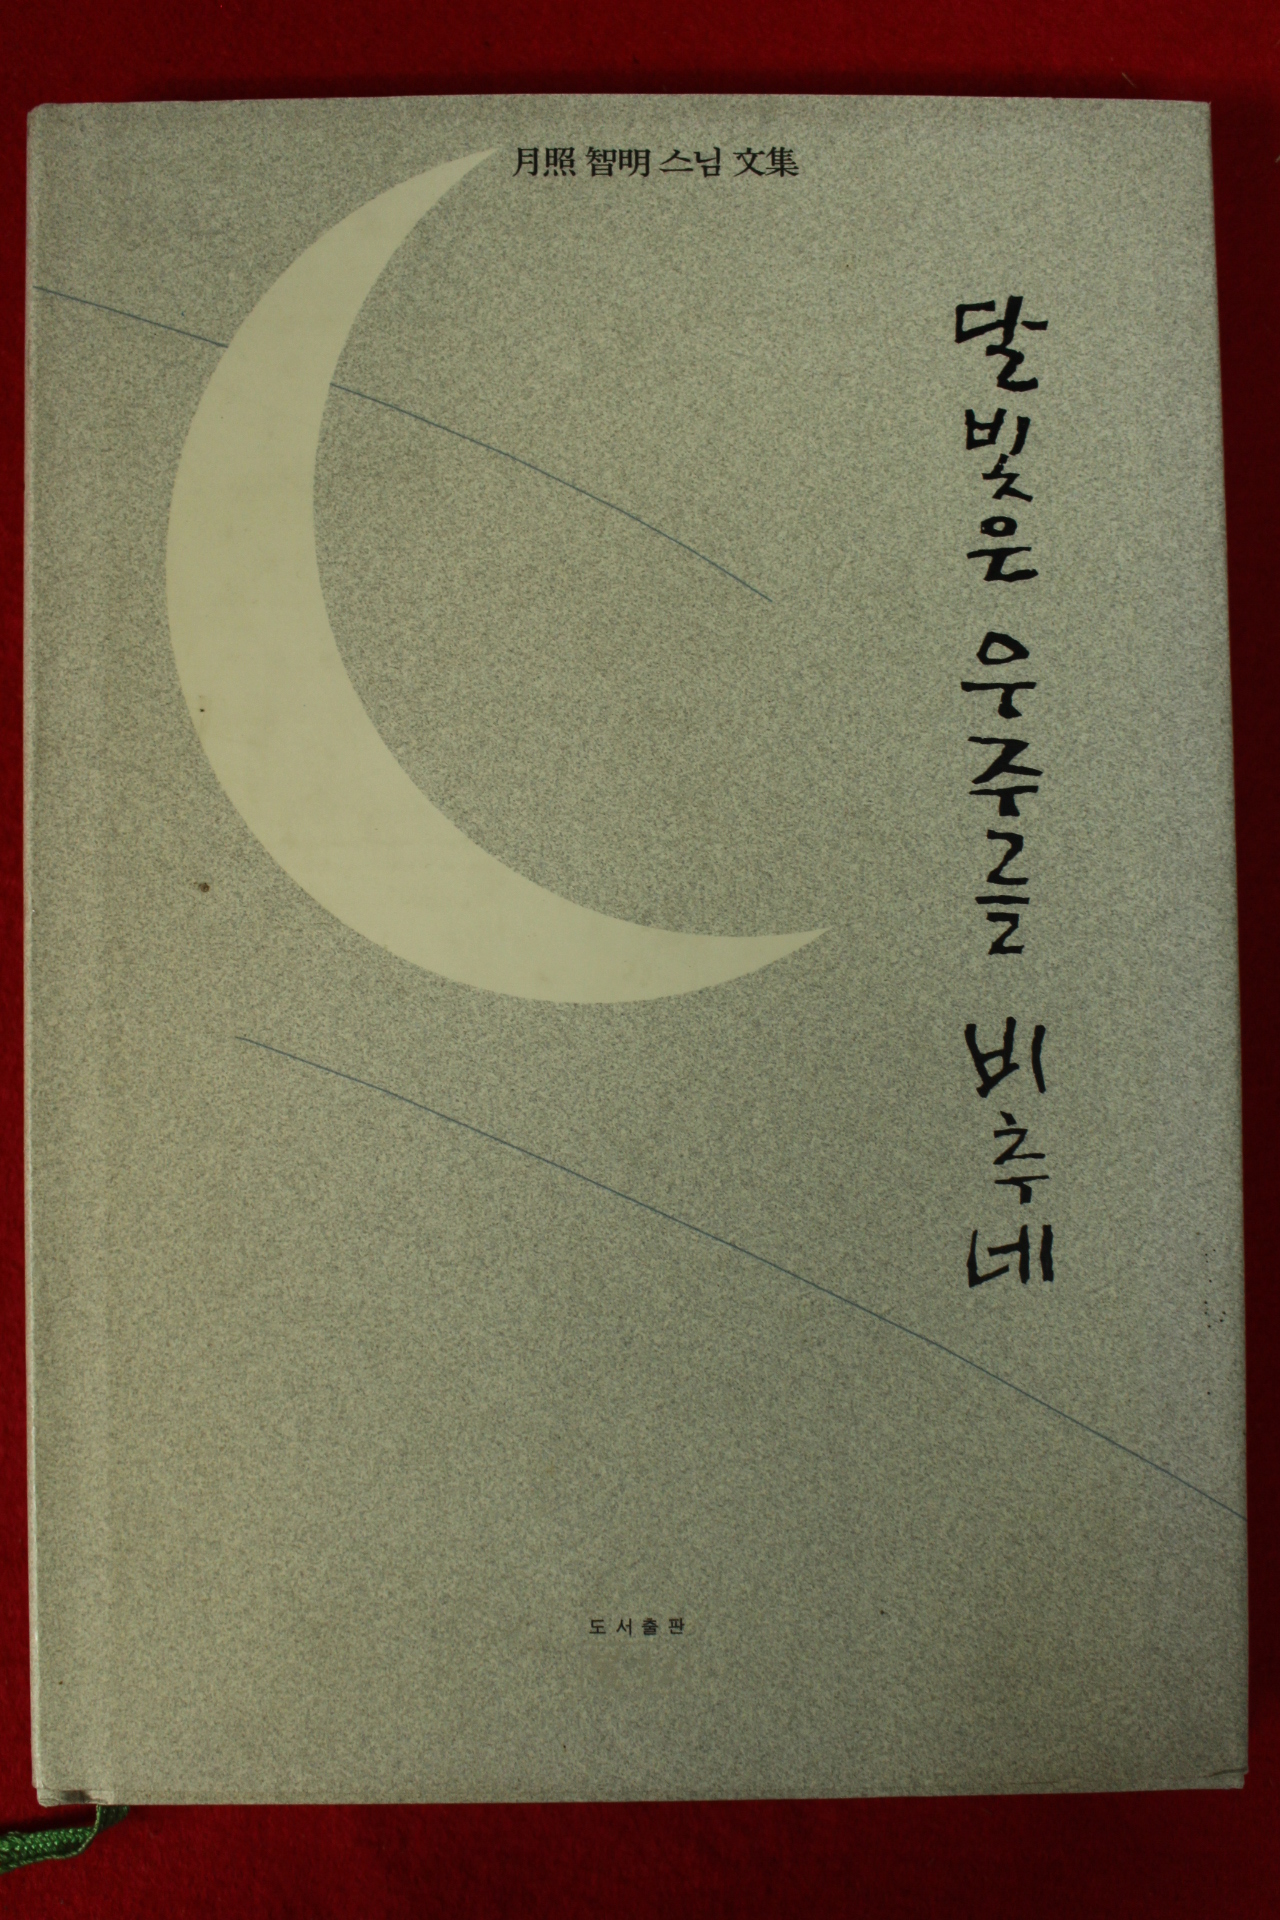 月照 智明 스님 文集
달빛은 우주를 비추네
도서출판